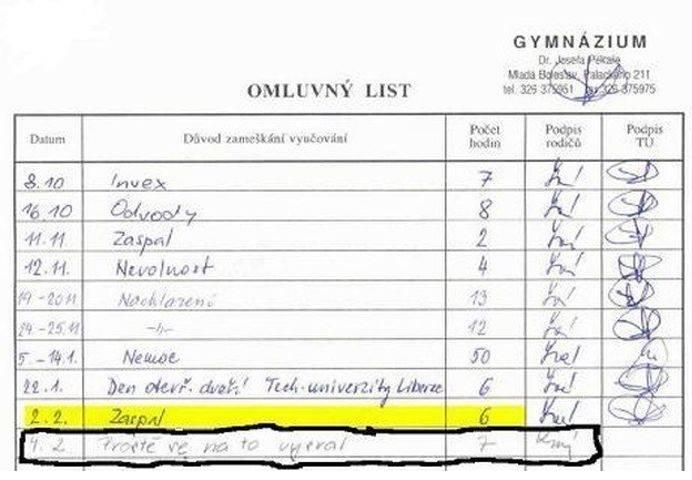 GYMNÁZIUM
Dr. Josefa Pekaře
Mladá Boleslav, Palackého 211
tel. 326 375951 fax 326 375975
OMLUVNÝ LIST
Datum Důvod zameškání vyučování Počet hodin Podpis rodičů Podpis TU
8.10 Invex 7
16.10 Odvody 8
11.11. Zaspal 2
12.11. Nevolnost 4
19-20.11 Nachlazení 13
24-25.11 -11- 12
5.-14.1. Nemoc 50
22.1. Den otevř. dveří Tech. univerzity Liberec 6
2.2. Zaspal 6
4.2 Prostě se na to vysral 7